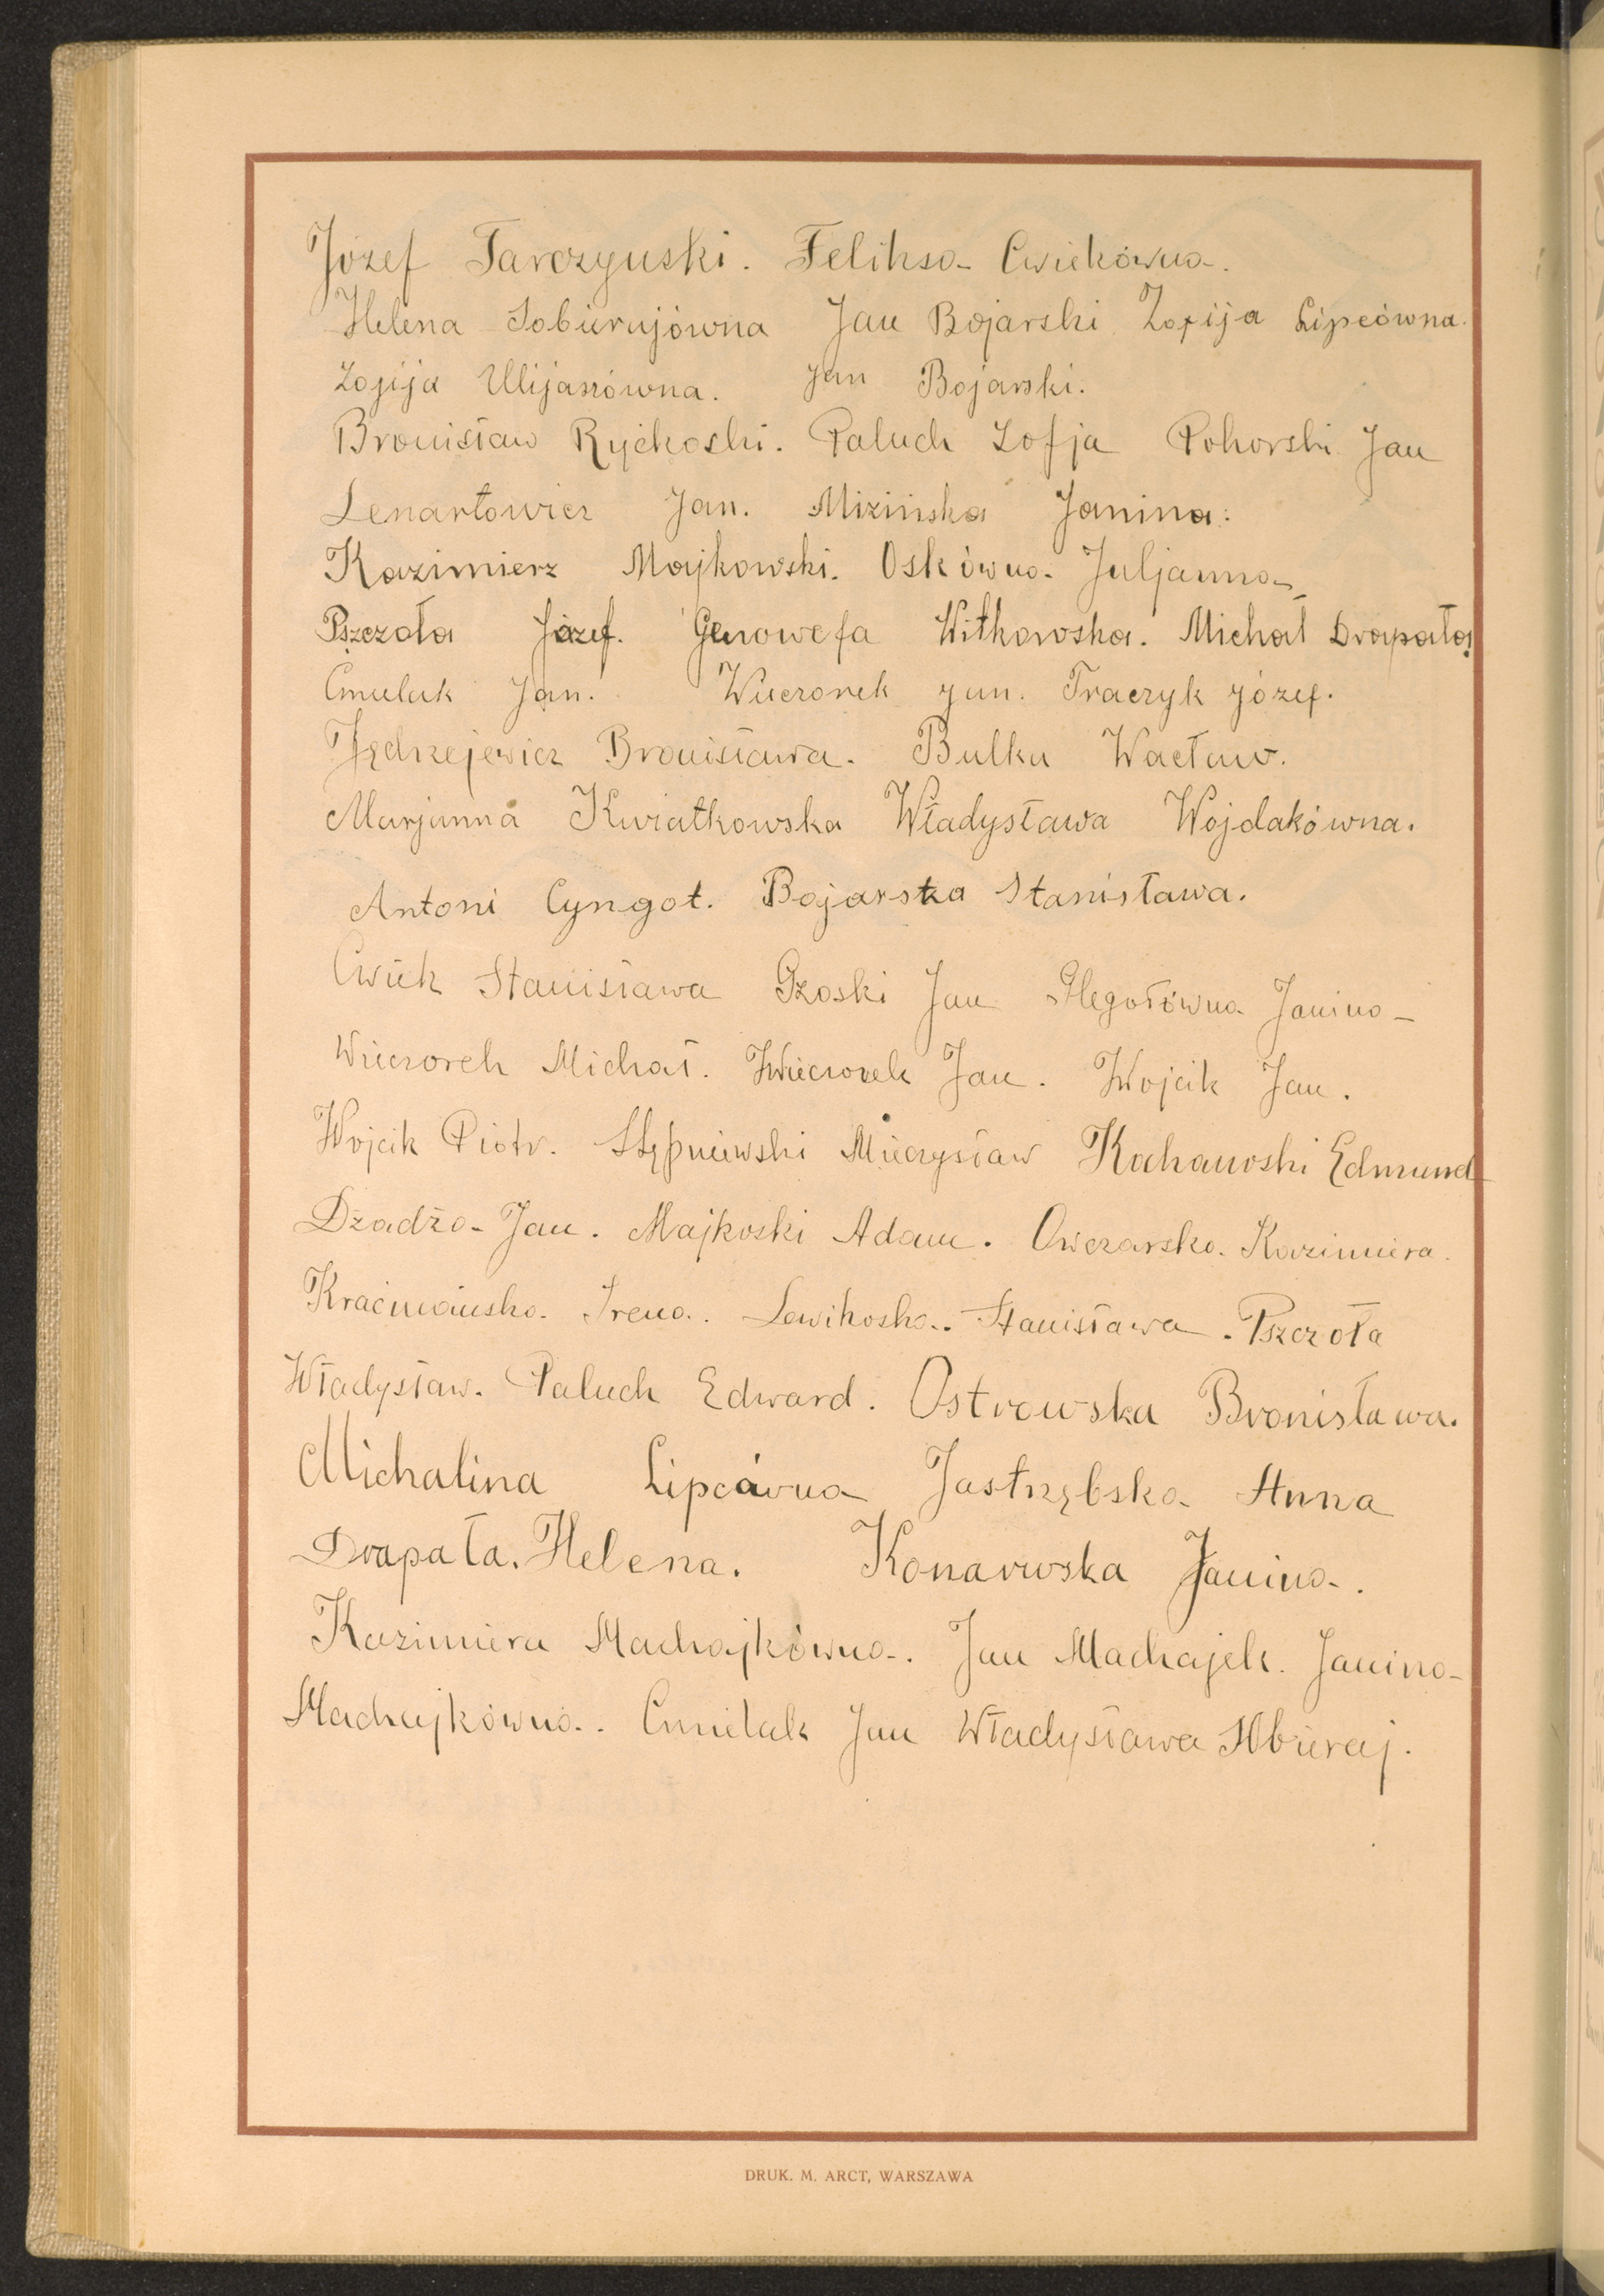 Józef Tarczyński. Feliksa Cwiekówna.
Helena Sobierajówna Jan Bojarski Zofija Lipcówna.
Zofija Ulijasówna. Jan Bojarski.
Bronisław Ryckoski. Paluch Zofja Pohorski Jan
Lenartowicz Jan. Mizinska Janina.
Kazimierz Majkowski. Oskówna Juljanna
Pszczoła Józef. Genowefa Witkowska. Michał Drapała
Cmielak Jan. Wieczorek Jan. Traczyk Józef.
Jędrzejewicz Bronisława. Bulka Wacław.
Marjanna Kwiatkowska Władysława Wojdakówna.
Antoni Cyngot. Bojarska Stanisława.
Cwiek Stanisława Gzoski Jan Janina
Wieczorek Michał. Wieczorek Jan. Wojcik Jan.
Wojcik Piotr. Stępniewski Mieczysław Kochanoski Edmund
Dżadżo Jan. Majkoski Adam. Owczarska Kazimiera.
Irena. Lewikoska. Stanisława. Pszczoła
Władysław. Paluch Edward. Ostrowska Bronisława.
Michalina Lipcówna Jastrzębska Anna
Drapała. Helena. Konarwska Janina.
Kazimiera Machajkówna. Jan Machajek. Janina
Machajkówna. Cmielak Jan Władysława
DRUK. M. ARCT, WARSZAWA